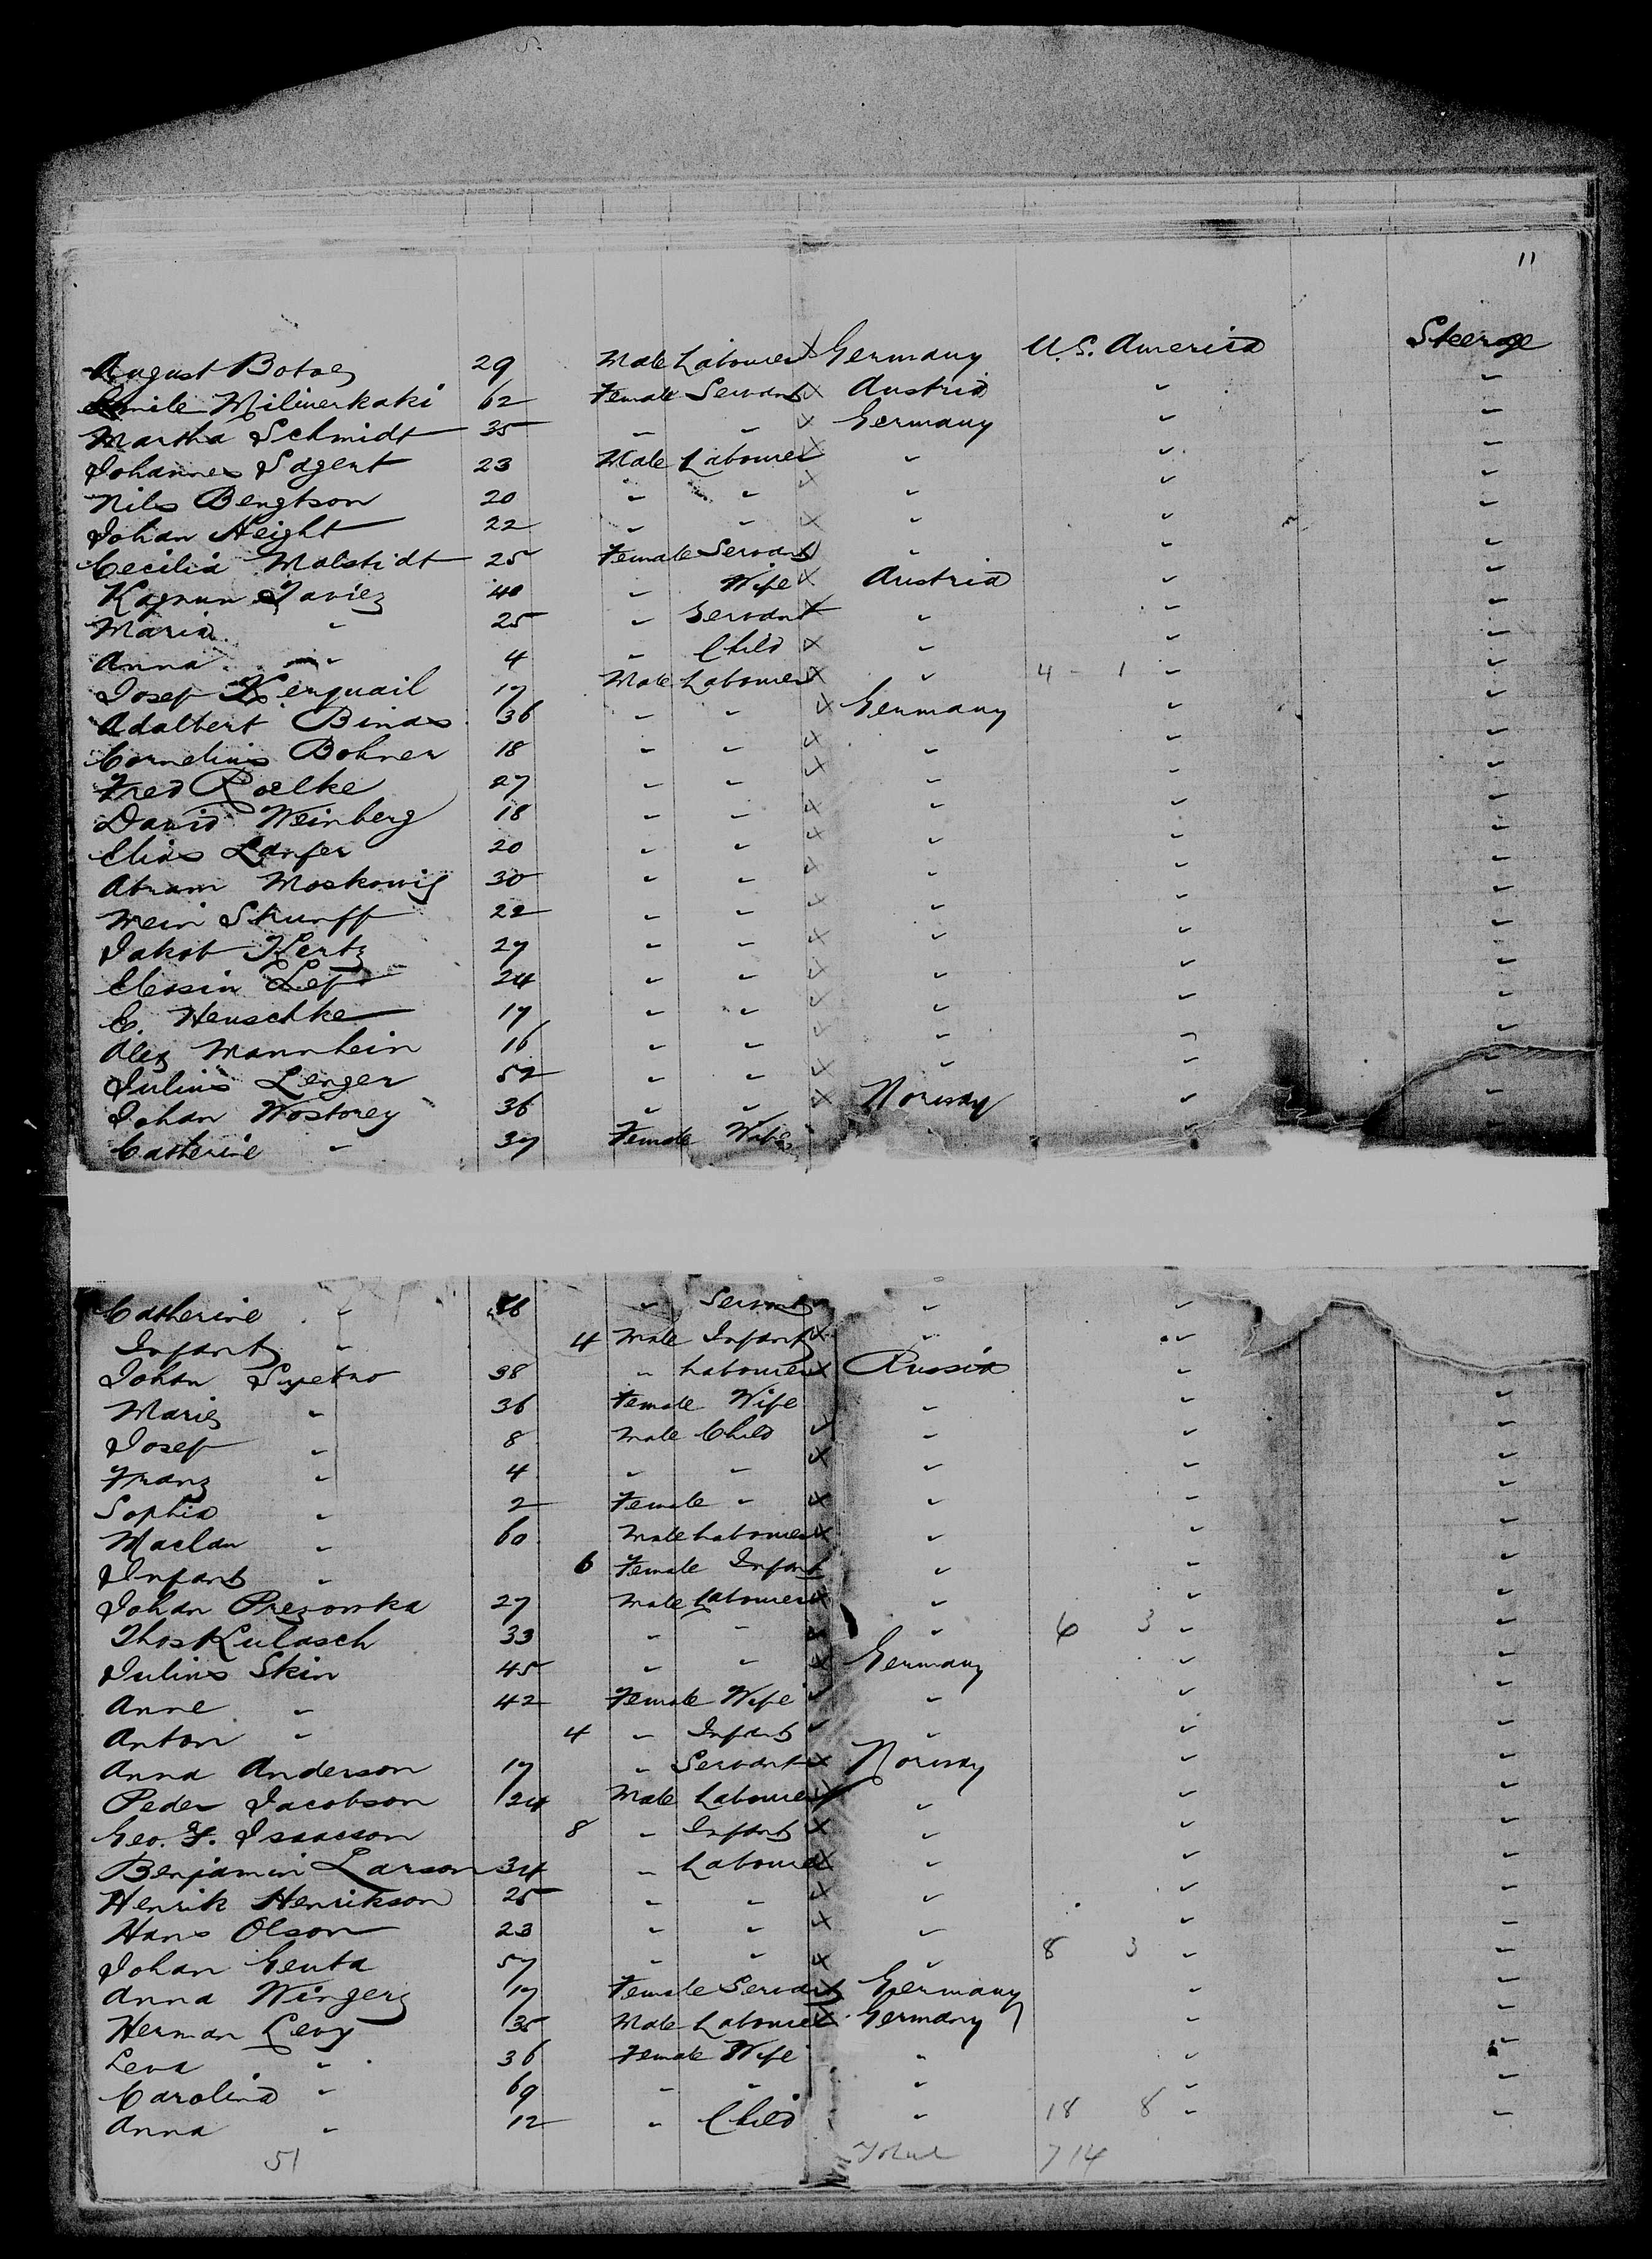 11
August Botoez 29 Male Labourer X Germany U.S. America Steerage
Milinerkaki 62 Female Servant X Austria " "
Martha Schmidt 35 " " X Germany " "
Johannes Sagert 23 Male Labourer X " " "
Nils Bengtson 20 " " X " " "
Johan Height 22 " " X " " "
Cecilia Malstidt 25 Female Servant " " "
40 " Wife X Austria " "
Maria " 25 " Servant X " " "
Anna " 4 " Child X " " "
Josef Kerquail 17 Male Labourer X " 4 - 1 " "
Adalbert Binas 36 " " X Germany " "
Cornelius Bohner 18 " " X " " "
Fred Roelke 27 " " X " " "
David Weinberg 18 " " X " " "
Elias Lanfer 20 " " X " " "
Abram Moskowig 30 " " X " " "
Mein Skurff 22 " " X " " "
Jakob Hertz 27 " " X " " "
24 " " X " " "
C. Henschke 17 " " X " " "
Alex Mannhein 16 " " X " " "
Julius Lenger 52 " " X " " "
Johan Wostorey 36 " " X Norway " "
Catherine " 37 Female Wife " " "
Catherine " 36 " Servant " "
Infant " 4 Male Infant X " "
Johan Supetno 38 " Labourer X Russia "
Marie " 36 Female Wife " " "
Josef " 8 Male Child " " "
Franz " 4 " " X " " "
Sophia " 2 Female " X " " "
Maclan " 60 Male Labourer X " " "
Infant " 6 Female Infant " " "
Johan Prezowska 27 Male Labourer X " " "
Thos Kulasch 33 " " X " 6 3 " "
Julius Skin 45 " " X Germany " "
Anne " 42 Female Wife " " "
Anton " 4 " Infant " " "
Anna Anderson 17 " Servant X Norway " "
Peder Jacobson 24 Male Labourer X " " "
Geo. F. Isaacson 8 " Infant X " " "
Benjamin Larson 34 " Labourer X " " "
Henrik Henrikson 25 " " X " " "
Hans Olson 23 " " X " " "
Johan Genta 57 " " X " 8 3 " "
Anna Winger 17 Female Servant X Germany " "
Herman Levy 35 Male Labourer X Germany " "
Lena " 36 Female Wife " " "
Carolina " 69 " " " " "
Anna " 12 " Child " 18 8 " "
51 Total 714